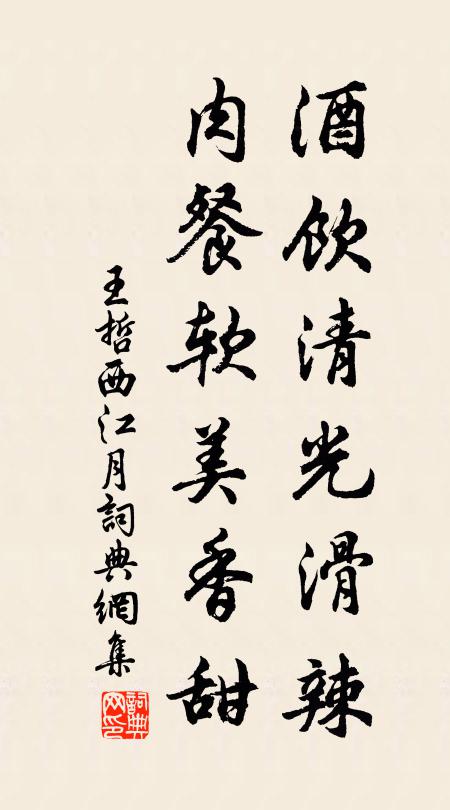 酒饮清光滑辣
肉餐软美香甜
王哲西江月詞典網集
詞典网印